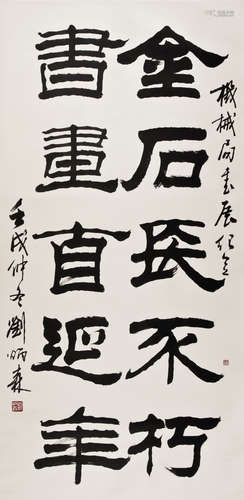 機械局書展紀念
金石長不朽
書畫直延年
壬戌仲冬劉炳森